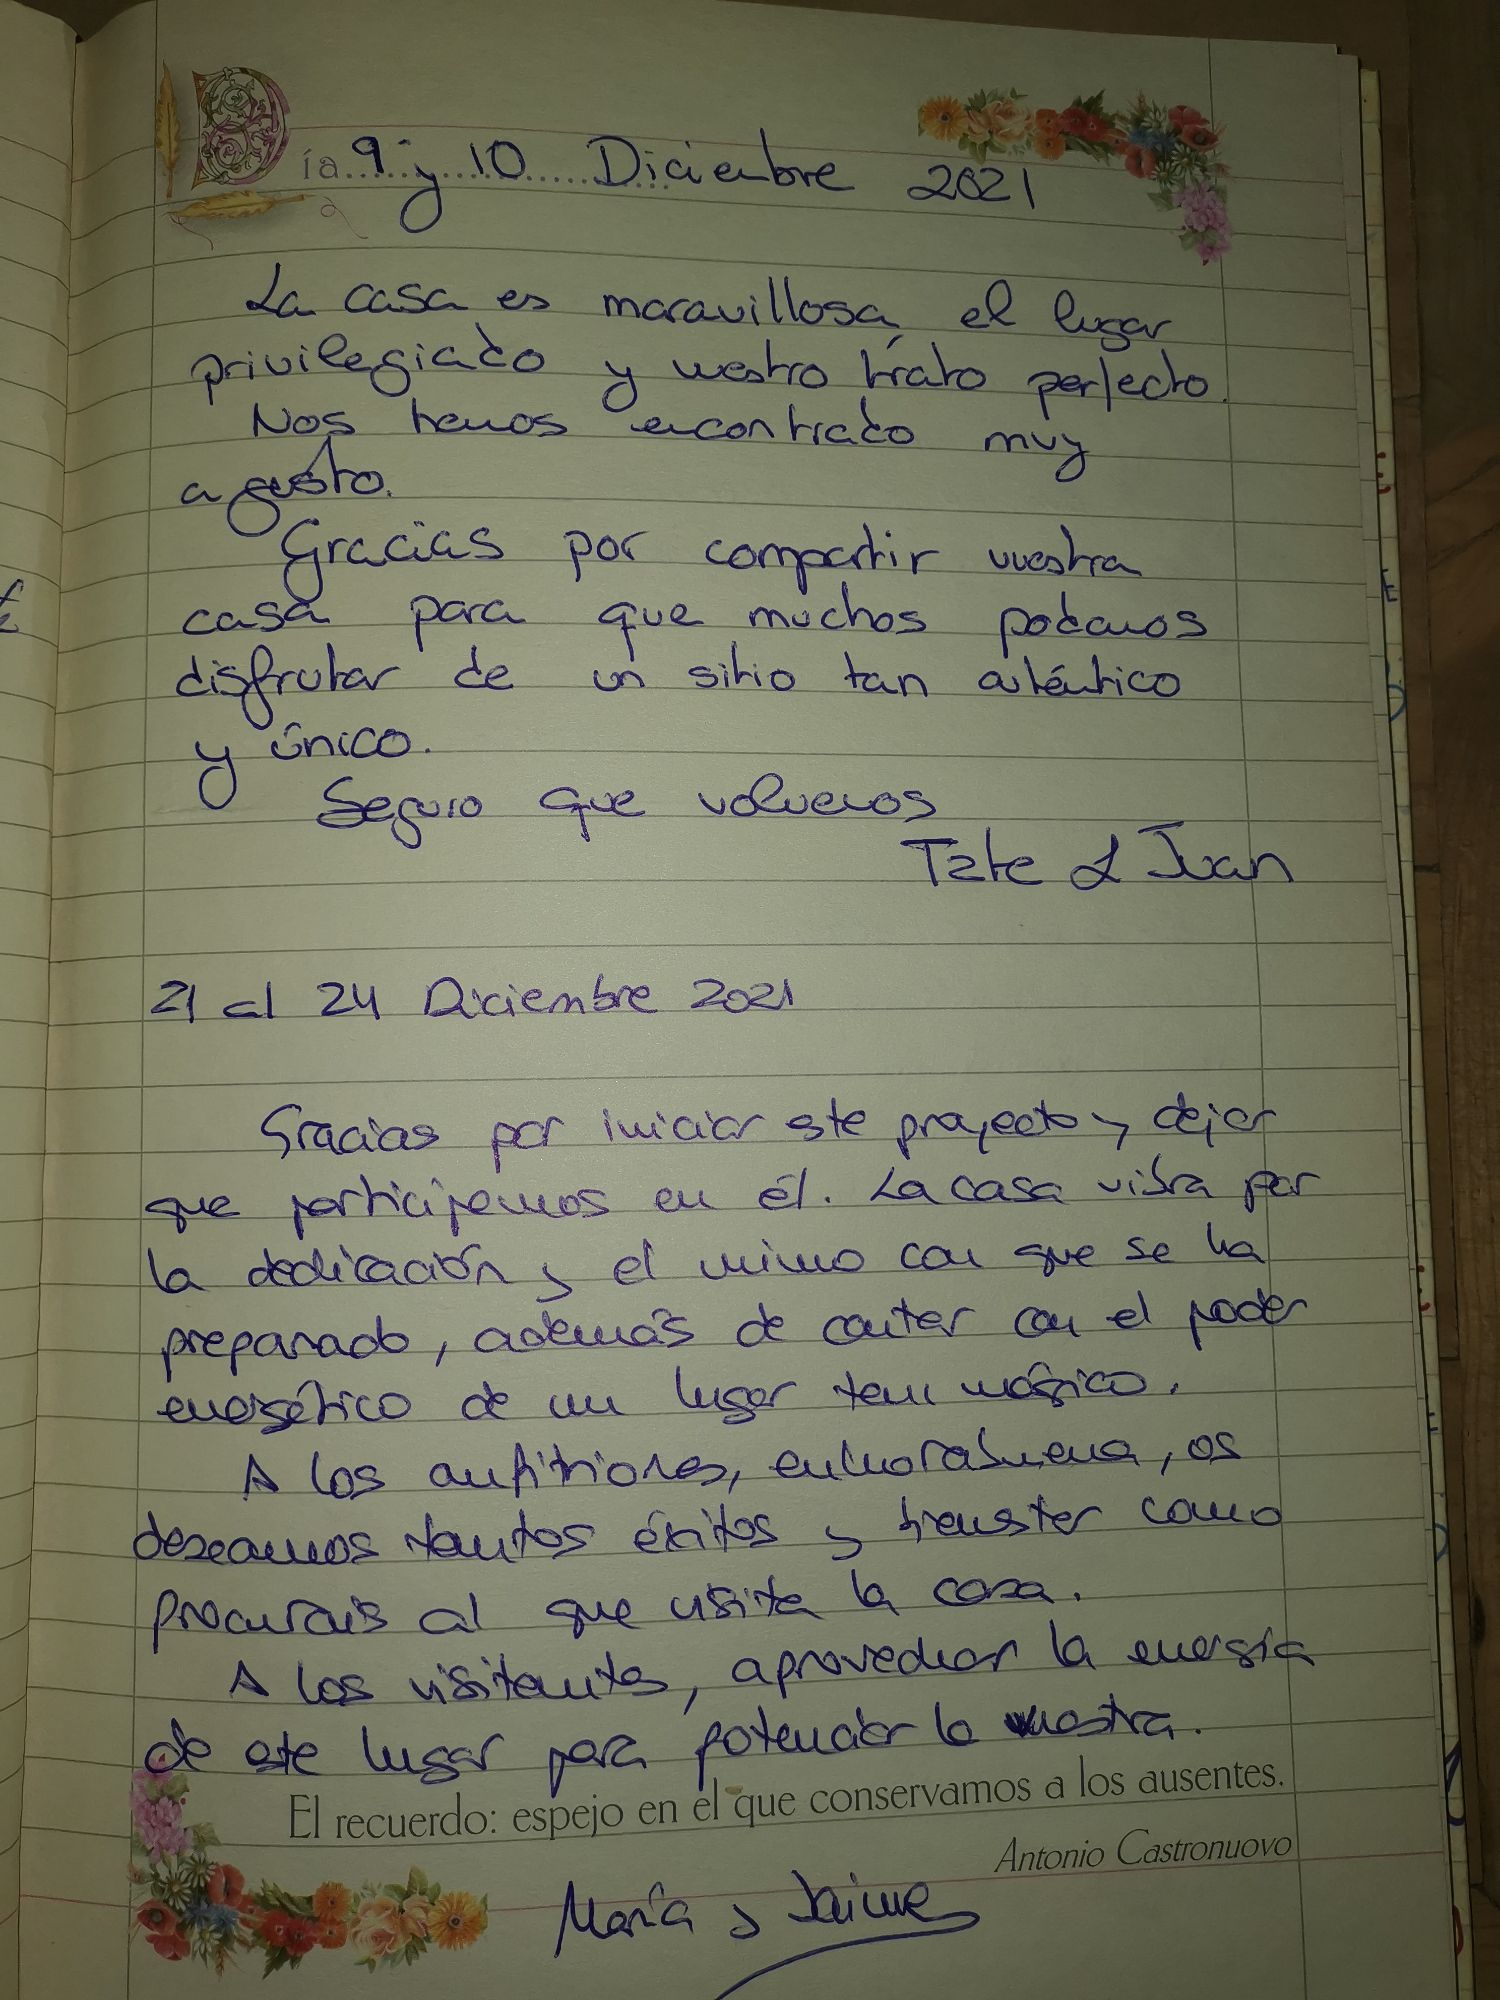 Día 9 y 10 Diciembre 2021
La casa es maravillosa, el lugar
privilegiado y vuestro trato perfecto.
Nos hemos encontrado muy
a gusto.
Gracias por compartir vuestra
casa para que muchos podamos
disfrutar de un sitio tan auténtico
y único.
Seguro que volvemos
Tate & Juan
21 al 24 Diciembre 2021
Gracias por iniciar este proyecto y dejar
que participemos en él. La casa vibra por
la dedicación y el mimo con que se ha
preparado, además de contar con el poder
energético de un lugar tan mágico.
A los anfitriones, enhorabuena, os
deseamos tantos éxitos y bienestar como
procuráis al que visita la casa.
A los visitantes, aprovechar la energía
de este lugar para potenciar la vuestra.
El recuerdo: espejo en el que conservamos a los ausentes.
Antonio Castronuovo
María y Jaime